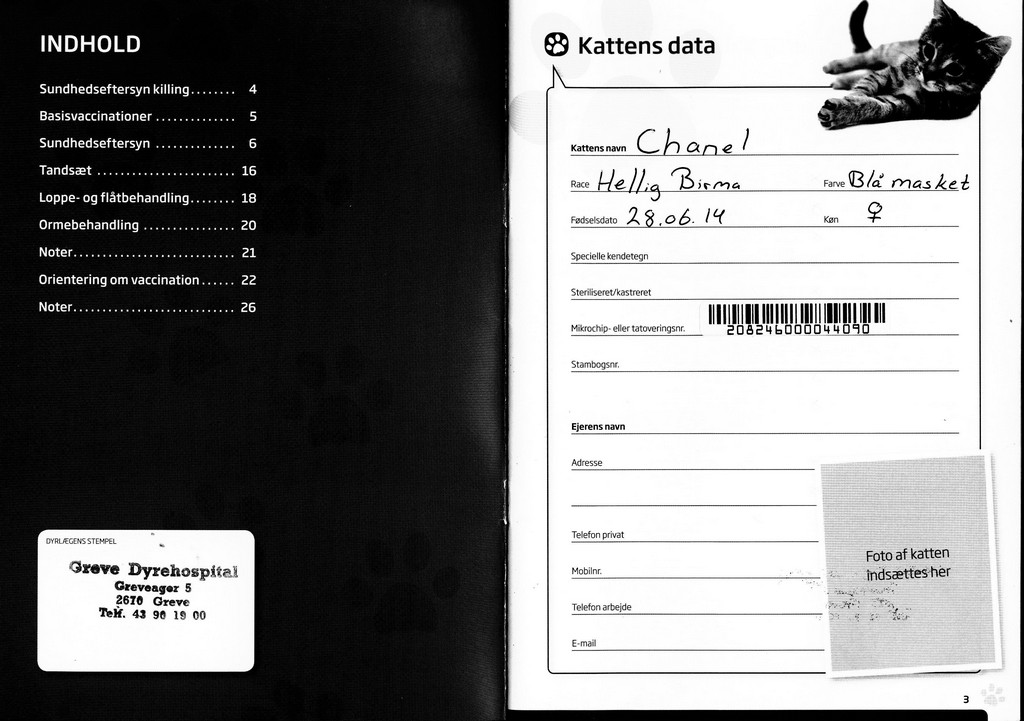 INDHOLD
Sundhedseftersyn killing........ 4
Basisvaccinationer .............. 5
Sundhedseftersyn .............. 6
Tandsæt ........................ 16
Loppe- og flåtbehandling........ 18
Ormebehandling ................ 20
Noter............................ 21
Orientering om vaccination...... 22
Noter............................ 26
DYRLÆGENS STEMPEL
Greve Dyrehospital
Greveager 5
2670 Greve
Telf. 43 90 19 00
Kattens data
Kattens navn Chanel
Race Hellig Birma Farve Blå masket
Fødselsdato 28.06.14 Køn ♀
Specielle kendetegn
Steriliseret/kastreret
Mikrochip- eller tatoveringsnr. 208246000044090
Stambogsnr.
Ejerens navn
Adresse
Telefon privat
Mobilnr.
Telefon arbejde
E-mail
Foto af katten
indsættes her
3